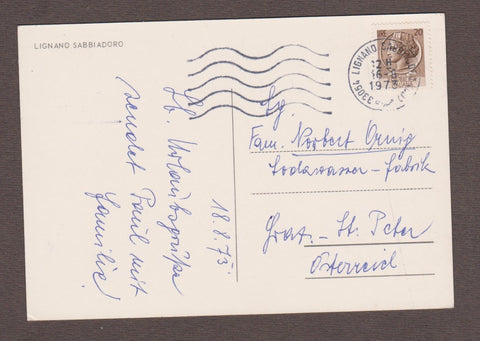 LIGNANO SABBIADORO
18.8.73
Lb. Urlaubsgrüße
sendet Paul mit
Familie!
20
33054 LIGNANO SABBIADORO
16-8
1973
Fam. Norbert Ornig
Sodawasser-Fabrik
Graz-St. Peter
Österreich